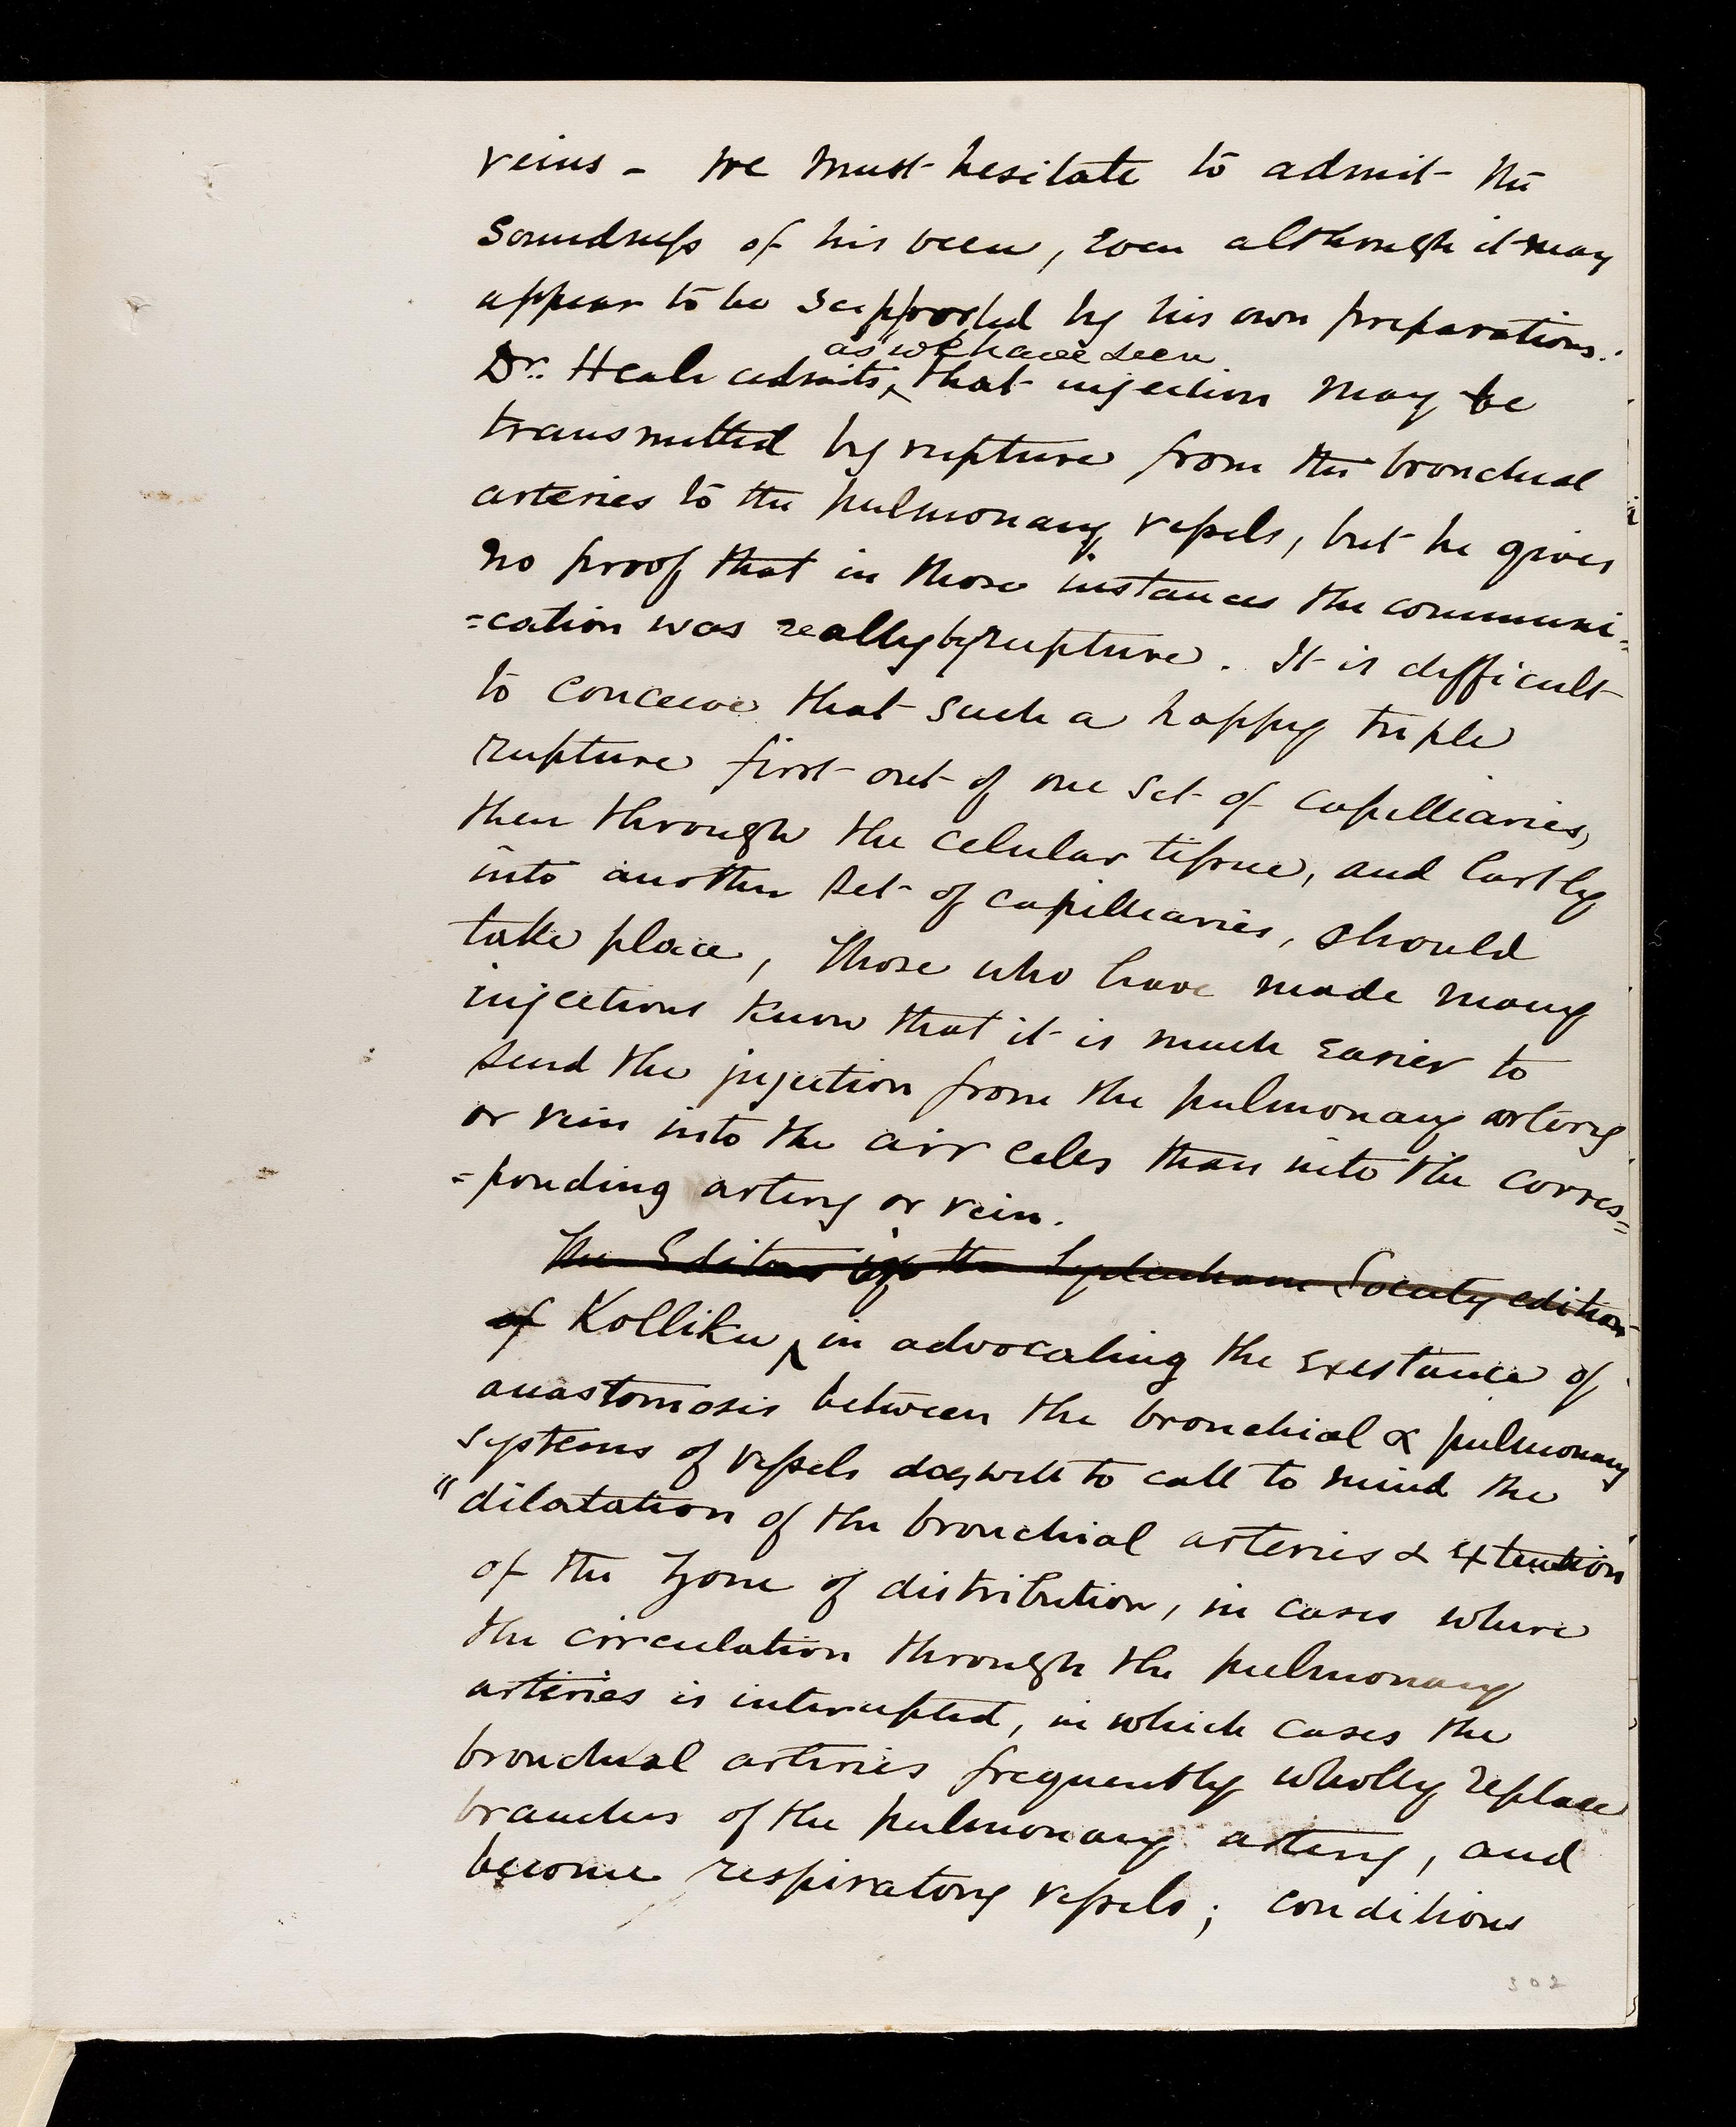 veins - we must hesitate to admit the
soundness of his view, even although it may
appear to be supported by his own preparations.
as we have seen
Dr. Heale admits, that injection may be
transmitted by rupture from the bronchial
arteries to the pulmonary vessels, but he gives
no proof that in those instances the communi-
=cation was really by rupture. It is difficult
to conceive that such a happy triple
rupture first out of one set of capilliaries,
then through the celular tissue, and lastly
into another set of capilliaries, should
take place, those who have made many
injections know that it is much easier to
send the injection from the pulmonary artery
or vein into the air celes than into the corres=
=ponding artery or vein.
The Editors of the Sydenham Society edition
of Kolliker, in advocating the existance of
anastomosis between the bronchial & pulmonary
systems of vessels does well to call to mind the
"dilatation of the bronchial arteries & extention
of the zone of distribution, in cases where
the circulation through the pulmonary
arteries is interrupted, in which cases the
bronchial arteries frequently wholly replace
branches of the pulmonary artery, and
become respiratory vessels; conditions
302